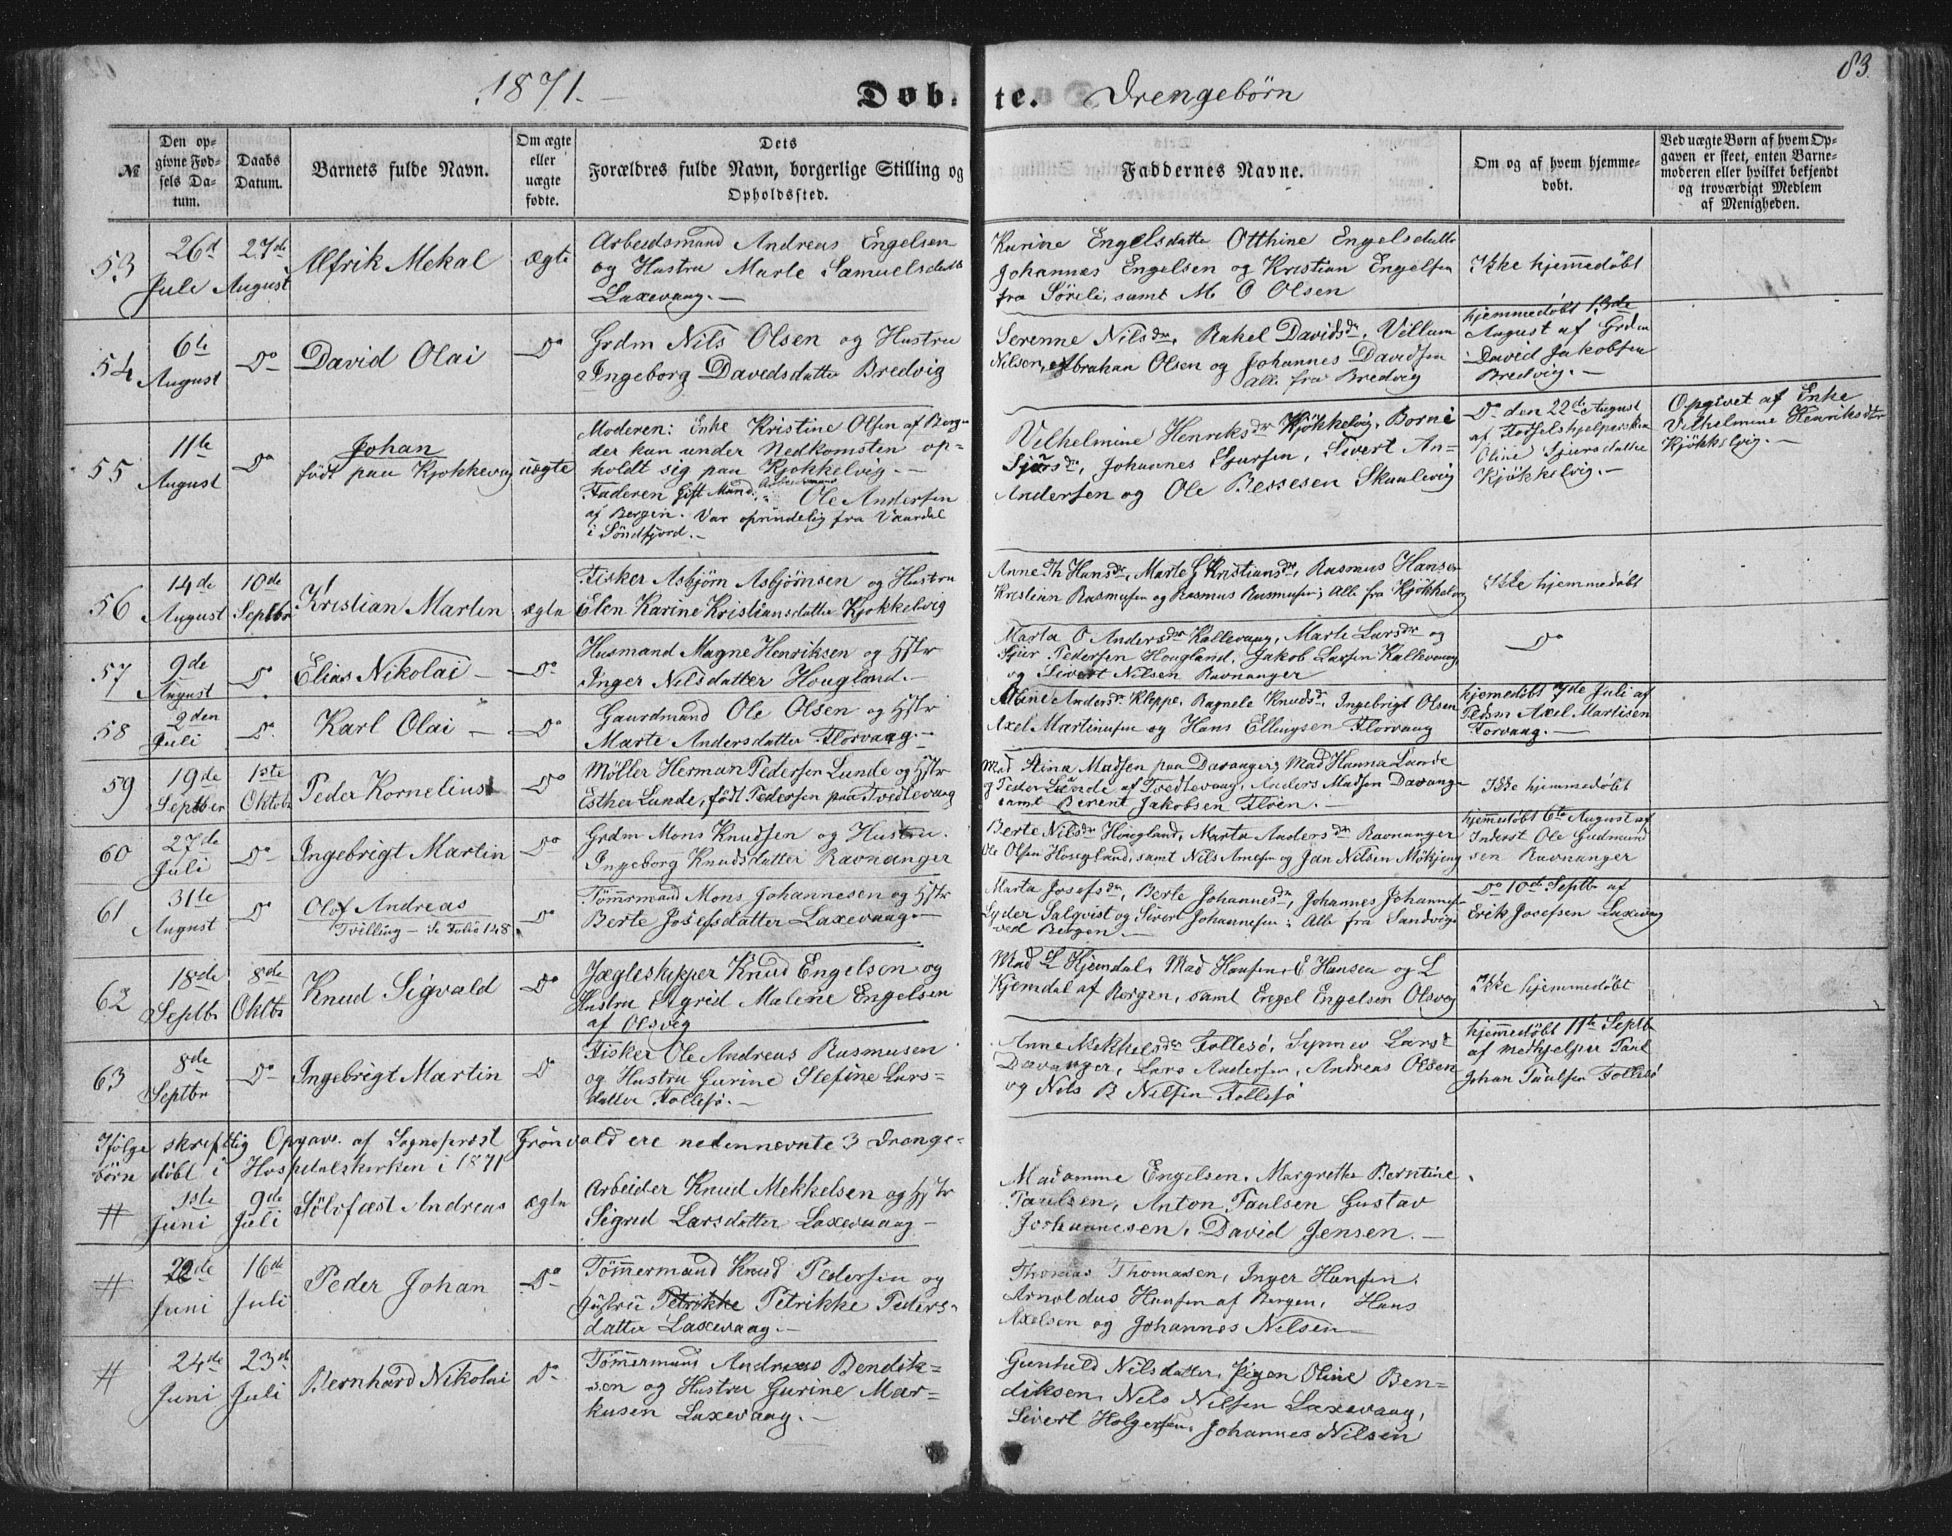 83.
1871.
Døbte. Drengebørn
№
Den opgivne Fødsels Datum.
Daabs Datum.
Barnets fulde Navn.
Om ægte eller uægte fødte.
Dets
Forældres fulde Navn, borgerlige Stilling og
Opholdssted.
Faddernes Navne.
Om og af hvem hjemmedøbt.
Ved uægte Børn af hvem Opgaven er skeet, enten Barnemoderen eller hvilket bekjendt og troværdigt Medlem af Menigheden.
53 26d Juli 27de August Alfrik Mekal ægte
Arbeidsmand Andreas Engelsen
og Hustru Marte Samuelsdatt
Laxevaag.
Karine Engelsdatte Otthine Engelsdatte
Johannes Engelsen og Kristian Engelsen
fra Söreli, samt M O Olsen
Ikke hjemmedöbt
54 6te August Do David Olai Do
Grdm Nils Olsen og Hustru
Ingeborg Davedsdatter Bredvig
Serenne Nilsdr, Rakel Davidsdr, Villum
Nilsen, Abrahan Olsen og Johannes Davidsen
alle fra Bredvig
hjemmedöbt 13de
August af Grdm
David Jakobsen
Bredvig.
55 11te August Do Johan
födt paa Kjokkevig uægte
Moderen: Enke Kristine Olsen af Bergen
der kun under Nedkomsten op-
holdt sig paa Kjokkelvig.
Faderen Gift Mand, Arbeidsmand Ole Andersen
af Bergen. Var oprindelig fra Vaardal
i Söndfjord.
Vilhelmine Henriksdr Kjökkelvig, Borni
Sjursdr, Johannes Sjursen, Sivert An-
Andersen og Ole Bessesen Skaulevig
Do den 22de August
af Födselshjelperske
Oline Sjursdatter
Kjökkelvig.
Opgivet af Enke
Vilhelmine Henriksdtr
Kjökkelvig.
56 14de August 10de Septbr Kristian Martin ægte
Fisker Asbjörn Asbjörnsen og Hustru
Elen Karine Kristiansdatter Kjokkelvig
Anne Th Hansdr, Marte G Kristiansdr, Rasmus Hansen
Kristian Rasmusen og Rasmus Rasmusen; Alle fra Kjökkelvig
Ikke hjemmedöbt
57 9de August Do Elias Nikolai Do
Husmand Magne Henriksen og Hstr
Inger Nilsdatter Hougland.
Marta O Andersdr Kallevaag, Marte Larsdr og
Sjur Pedersen Hougland, Jakob Larsen Kallevaag
og Sivert Nilsen Ravnanger
Do
58 2den Juli Do Karl Olai Do
Gaardmand Ole Olsen og Hstr
Marte Andersdatter Florvaag.
Oline Andersdr Kleppe, Ragnele Knudsdr, Ingebrigt Olsen
Axel Martinusen og Hans Ellingsen Florvaag
hjemedöbt 7de Juli af
Axel Martisen
Forvaag.
59 19de Septbr 1ste Oktobr Peder Kornelius Do
Möller Herman Pedersen Lunde og Hstr
Esther Lunde, födt Pedersen paa Tvedtevaag
Mad Stina Madsen paa Davanger, Mad Hanna Lunde
og Peder Lunde af Tvedtevaag, Anders Madsen Davang
samt Berent Jakobsen Flöen.
Ikke hjemmedöbt
60 27de Juli Do Ingebrigt Martin Do
Grdm Mons Knudsen og Hustru
Ingeborg Knudsdatter Ravnanger
Berte Nilsdr Hougland, Marta Andersdr Ravnanger
Ole Olsen Hougland, samt Nils Arnesen og Jan Nilsen Mökjeng
hjemmedöbt 6te August af
Inderst Ole Gudmund
sen Ravnanger
61 31te August Do Olof Andreas
Tvilling - Se Folio 148 Do
Tömmrmand Mons Johannesen og Hstr
Berte Josefsdatter Laxevaag
Marta Josefsdr, Berte Johannesdr, Johannes Johannes
Lyder Salqvist og Sivert Johannesen; Alle fra Sandvigen
ved Bergen.
Do 10de Septbr af
Erik Josefsen Laxevaag
62 18de Septbr 8de Oktbr Knud Sigvald Do
Jægteskipper Knud Engelsen og
Hustru Sigrid Malene Engelsen
af Olsvig
Mad L Kjemdal, Mad Hansen, E Hansen og L
Kjemdal af Bergen, samt Engel Engelsen Olsveg
Ikke hjemmedöbt
63 8de Septbr Do Ingebrigt Martin Do
Fisker Ole Andreas Rasmusen
og Hustru Gurine Stefine Lars-
datter Follesö.
Anne Mekkelsdr Follesö, Synnev Larsd
Davanger, Lars Andersen, Andreas Olsen
og Nils B Nilsen Follesö
hjemmedöbt 11te Septbr
af Medhjelper Paul
Johan Paulsen Follesö
Ifölge skreftlig Opgave af Sogneprest Grönvold ere nedennævnte 3 Drenge-
börn döbt i Hospitalskirken i 1871
# 1ste Juni 9de Juli Sölvfæst Andreas ægte
Arbeider Knud Mekkelsen og Hstr
Sigrid Larsdatter Laxevaag
Madamme Engelsen, Margrethe Berntine
Paulsen, Anton Paulsen Gustav
Johannesen, David Jensen.
# 22de Juni 16de Juli Peder Johan Do
Tömmermand Knud Pedersen og
Hustru Petrikke Petrikke Peders-
datter Laxevaag.
Thomas Thomassen, Inger Hansen,
Arnoldus Hansen af Bergen, Hans
Axelsen og Johannes Nilsen
# 24de Juni 23de Juli Bernhard Nikolai Do
Tömmermand Andreas Bendik-
sen og Hustru Gurine Mar-
kusen Laxevaag.
Gunhild Nilsdatter, Pigen Oline Ben-
diksen, Nels Nilsen Laxevaag,
Sivert Holgersen, Johannes Nilsen